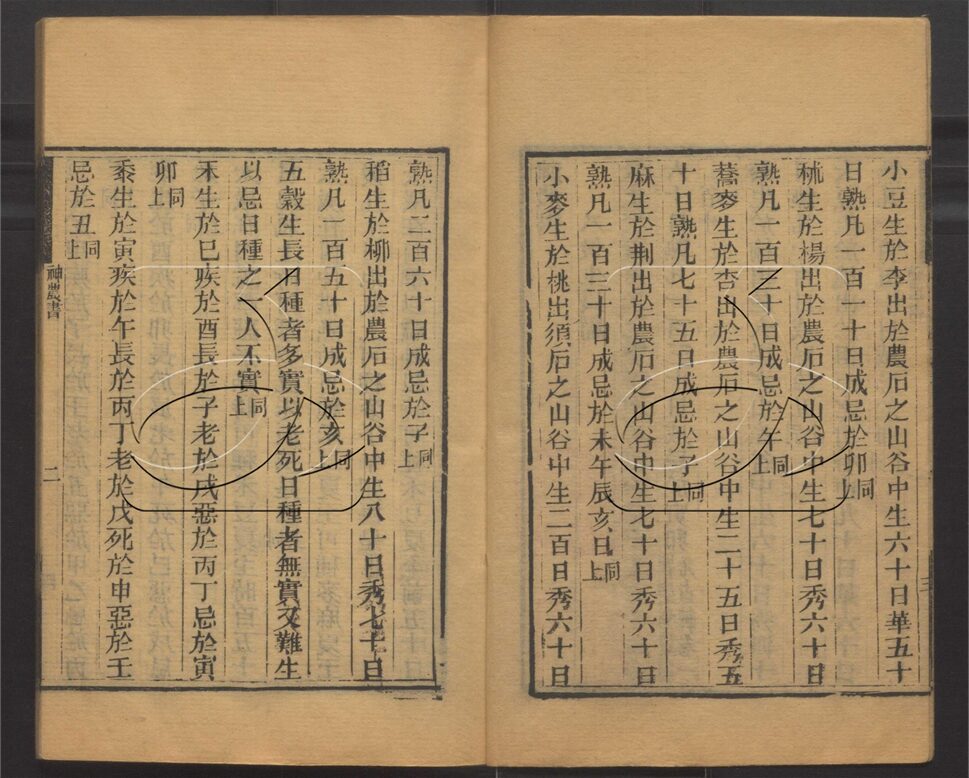 小豆生於李出於農石之山谷中生六十日華五十
日熟凡一百一十日成忌於卯同上
秫生於楊出於農石之山谷中生七十日秀六十日
熟凡一百三十日成忌於午同上
蕎麥生於杏出於農石之山谷中生二十五日秀五
十日熟凡七十五日成忌於子同上
麻生於荆出於農石之山谷中生七十日秀六十日
熟凡一百三十日成忌於未午辰亥日同上
小麥生於桃出須石之山谷中生二百日秀六十日
熟凡二百六十日成忌於子同上
稻生於柳出於農石之山谷中生八十日秀七十日
熟凡一百五十日成忌於亥同上
五穀生長日種者多實以老死日種者無實又難生
以忌日種之一人不實同上
禾生於巳疾於酉長於子老於戌惡於丙丁忌於寅
卯同上
黍生於寅疾於午長於丙丁老於戊死於申惡於壬
忌於丑同上
神農書
二